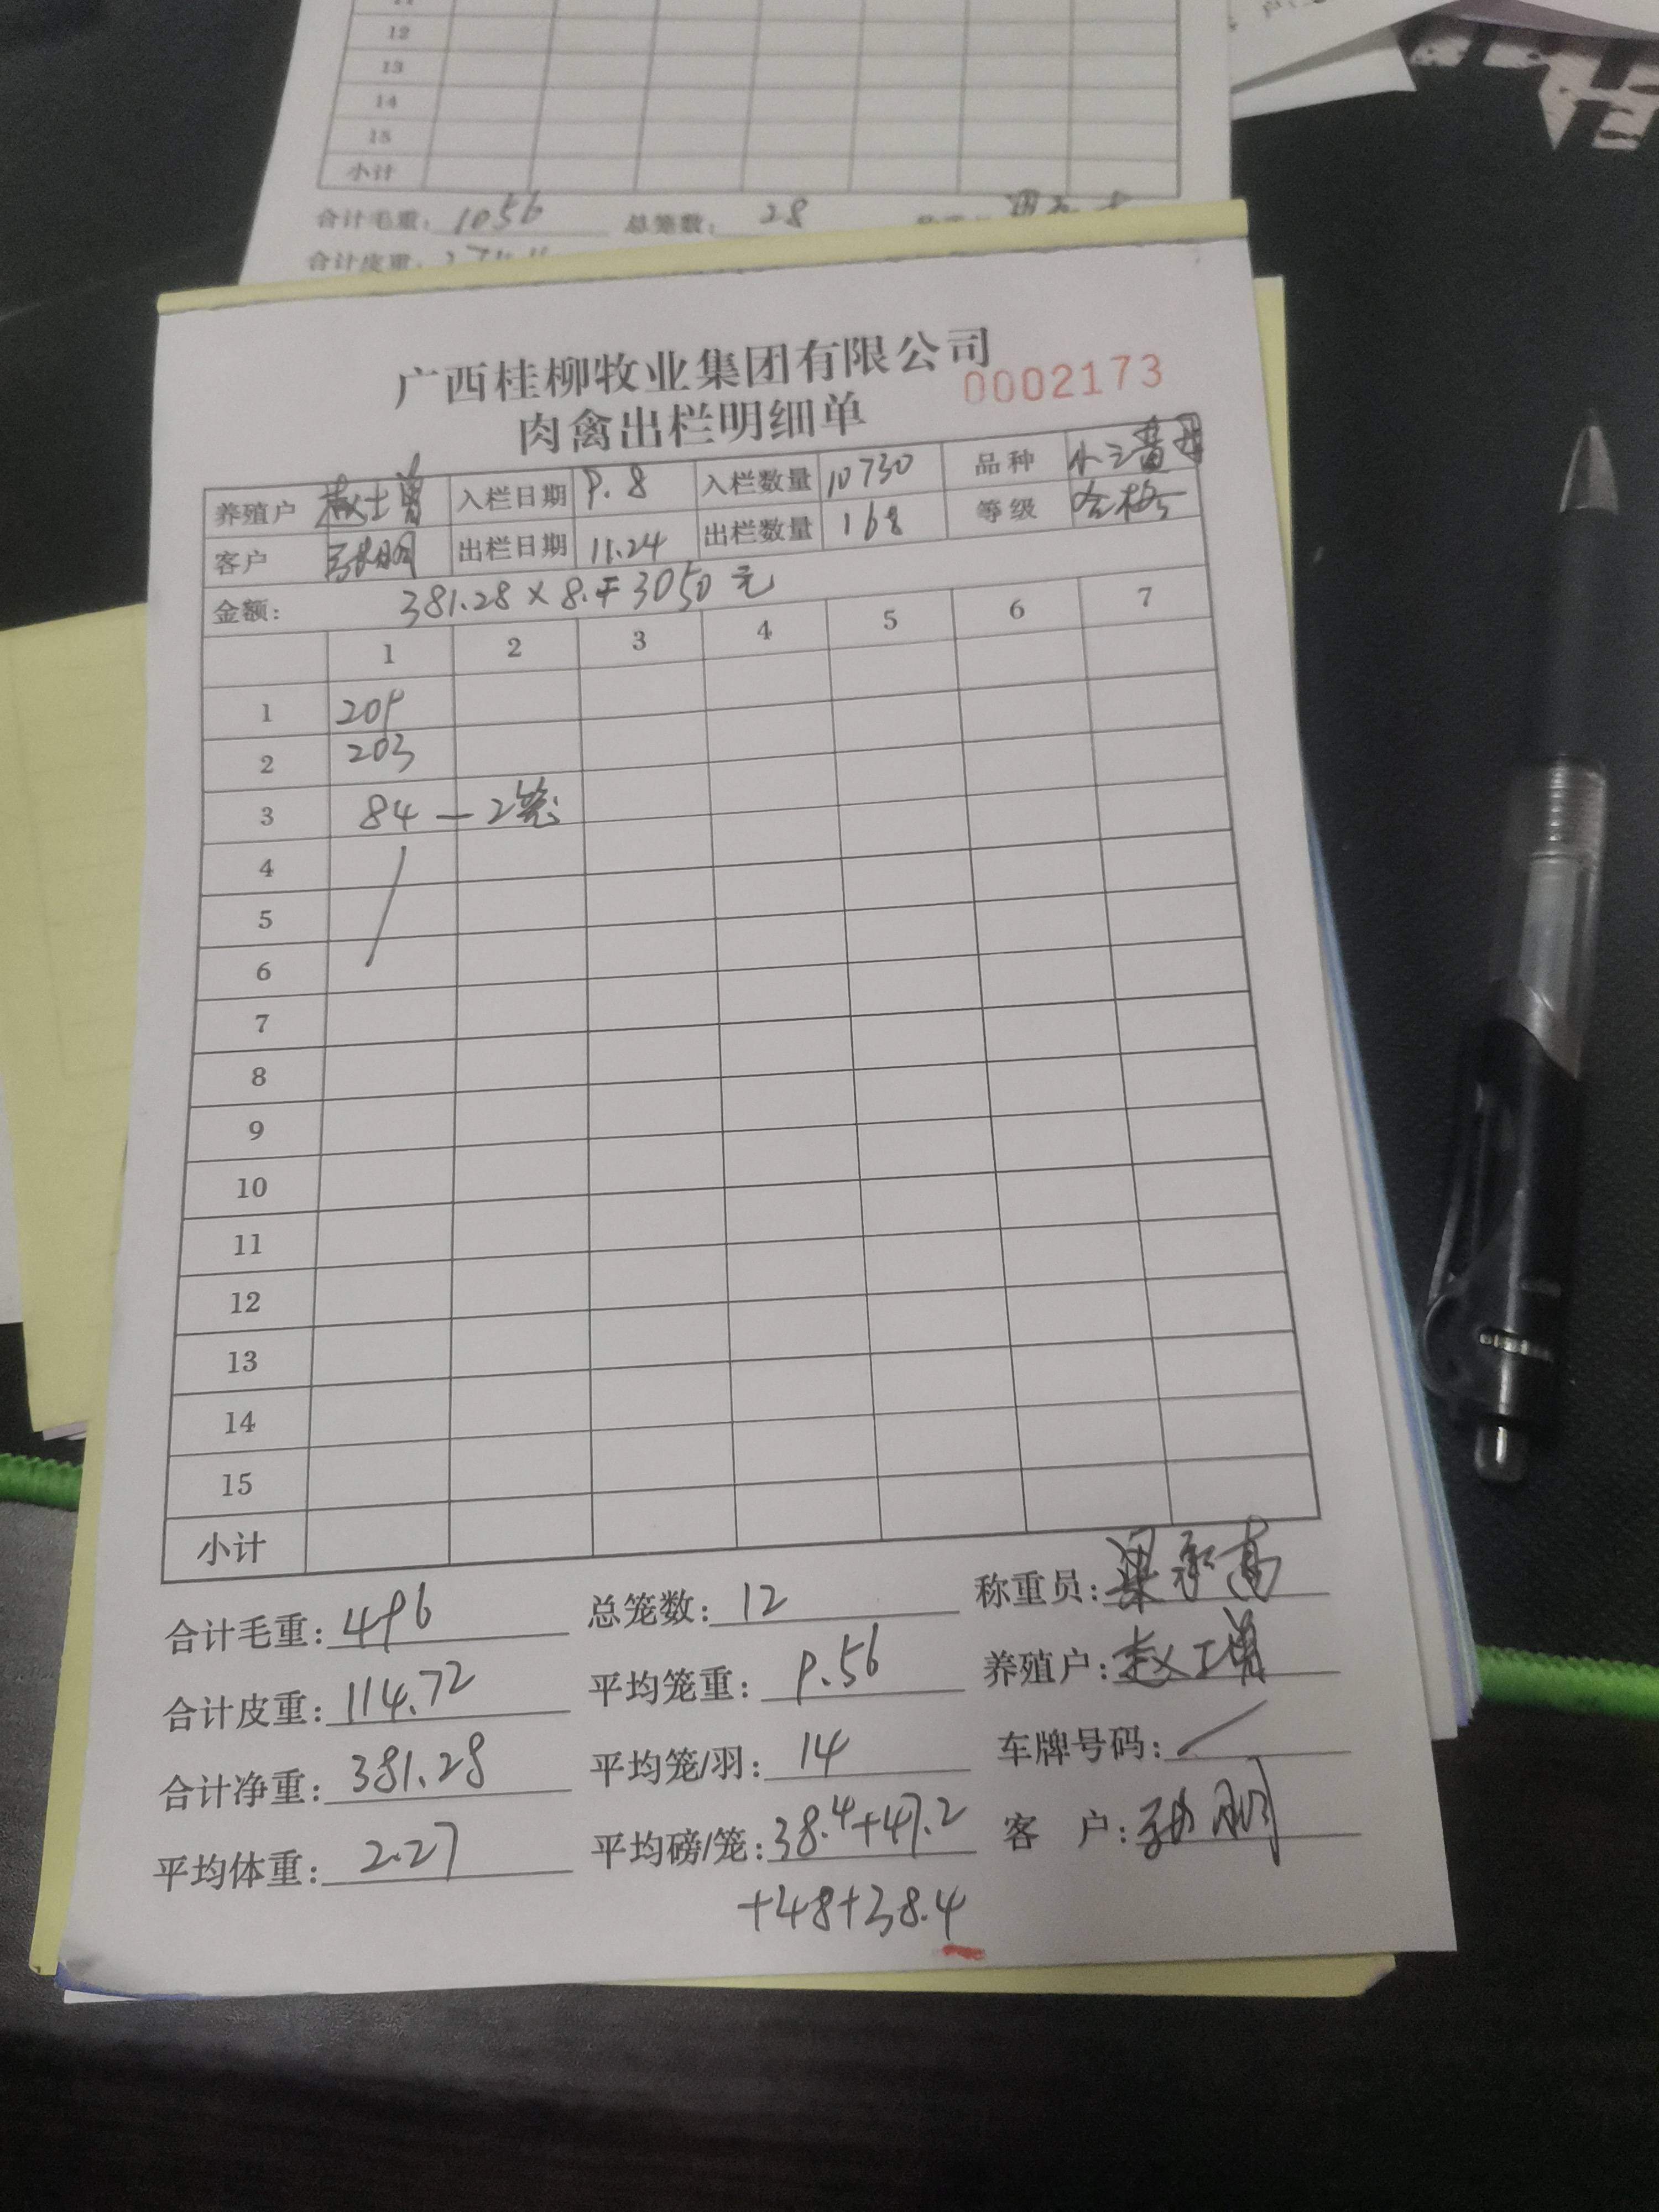 12
13
14
15
小计
合计毛重: 1056 总笼数: 28
合计皮重:
广西桂柳牧业集团有限公司
0002173
肉禽出栏明细单
养殖户 赵士曾 入栏日期 9.8 入栏数量 10730 品种
客户 出栏日期 11.24 出栏数量 168 等级 合格
金额: 381.28×8.=3050元
1 2 3 4 5 6 7
1 209
2 203
3 84—2笼
4
5
6
7
8
9
10
11
12
13
14
15
小计
合计毛重: 496 总笼数: 12 称重员:
合计皮重: 114.72 平均笼重: 9.56 养殖户:
合计净重: 381.28 平均笼/羽: 14 车牌号码: /
平均体重: 2.27 平均磅/笼: 38.4+47.2 客 户:
+48+38.4